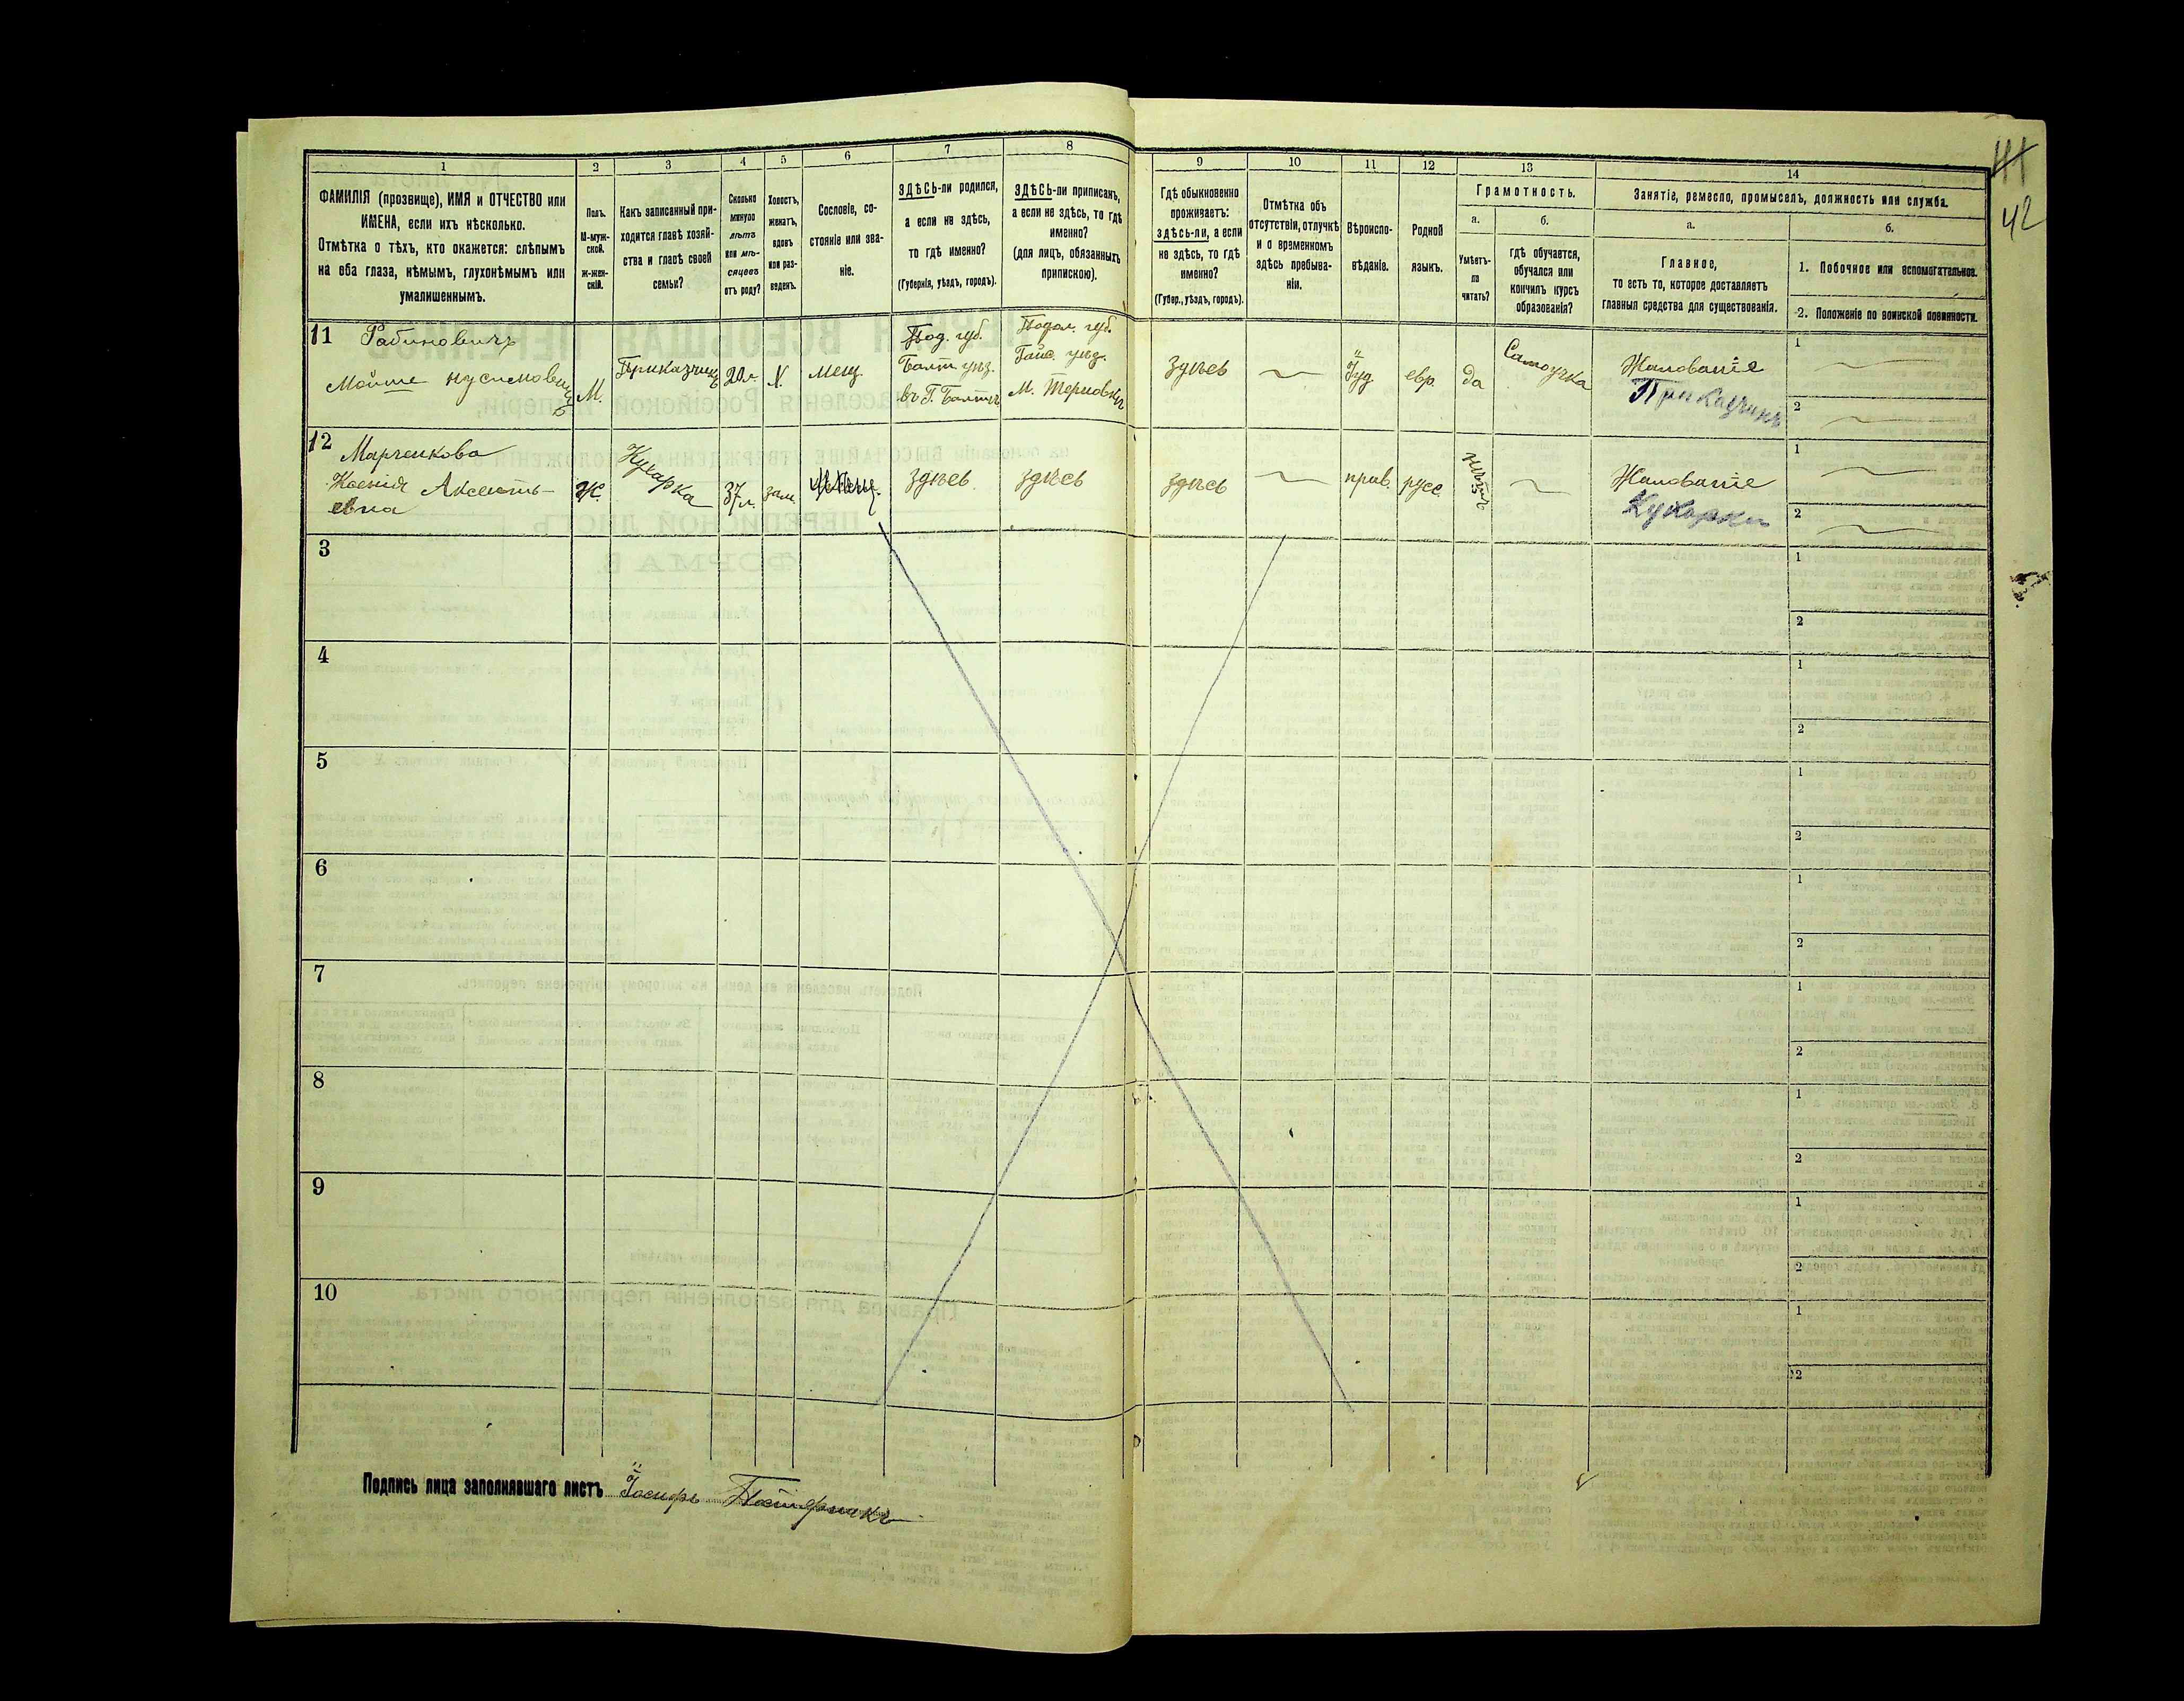 1
2
3
4
5
6
7
8
9
10
11
12
13
14
41
42
ФАМИЛІЯ (прозвище), ИМЯ и ОТЧЕСТВО или
ИМЕНА, если ихъ нѣсколько.
Отмѣтка о тѣхъ, кто окажется: слѣпымъ
на оба глаза, нѣмымъ, глухонѣмымъ или
умалишеннымъ.
Полъ.
М-муж-
ской.
ж-жен-
скій.
Какъ записанный при-
ходится главѣ хозяй-
ства и главѣ своей
семьи?
Сколько
минуло
лѣтъ
или мѣ-
сяцевъ
отъ роду?
Холостъ,
женатъ,
вдовъ
или раз-
веденъ.
Сословіе, со-
стояніе или зва-
ніе.
ЗДѢСЬ-ли родился,
а если не здѣсь,
то гдѣ именно?
(Губернія, уѣздъ, городъ).
ЗДѢСЬ-ли приписанъ,
а если не здѣсь, то гдѣ
именно?
(для лицъ, обязанныхъ
припискою).
Гдѣ обыкновенно
проживаетъ:
здѣсь-ли, а если
не здѣсь, то гдѣ
именно?
(Губер., уѣздъ, городъ).
Отмѣтка объ
отсутствіи, отлучкѣ
и о временномъ
здѣсь пребыва-
ніи.
Вѣроиспо-
вѣданіе.
Родной
языкъ.
Грамотность.
а.
Умѣетъ-
ли
читать?
б.
гдѣ обучается,
обучался или
кончилъ курсъ
образованія?
Занятіе, ремесло, промыселъ, должность или служба.
а.
Главное,
то есть то, которое доставляетъ
главныя средства для существованія.
б.
1. Побочное или вспомогательное.
2. Положеніе по воинской повинности.
11 Рабиновичъ
Мойше Нусимовичъ
М.
Приказчикъ
20 л.
Х.
мещ.
Под. губ.
Балт. уѣз.
въ Г. Балтѣ
Подол. губ.
Гайс. уѣз.
М. Терновкѣ
здѣсь
Іуд
евр.
да
Самоучка
Жалованіе
Приказчикъ
1
2
12 Марченкова
Ксенія Аксенть-
евна
Ж.
Кухарка
37 л.
зам.
здѣсь
здѣсь
здѣсь
прав.
русс.
нѣтъ
Жалованіе
Кухарки
1
2
3
1
2
4
1
2
5
1
2
6
1
2
7
1
2
8
1
2
9
1
2
10
1
2
Подпись лица заполнявшаго листъ Іосифъ Пастернакъ